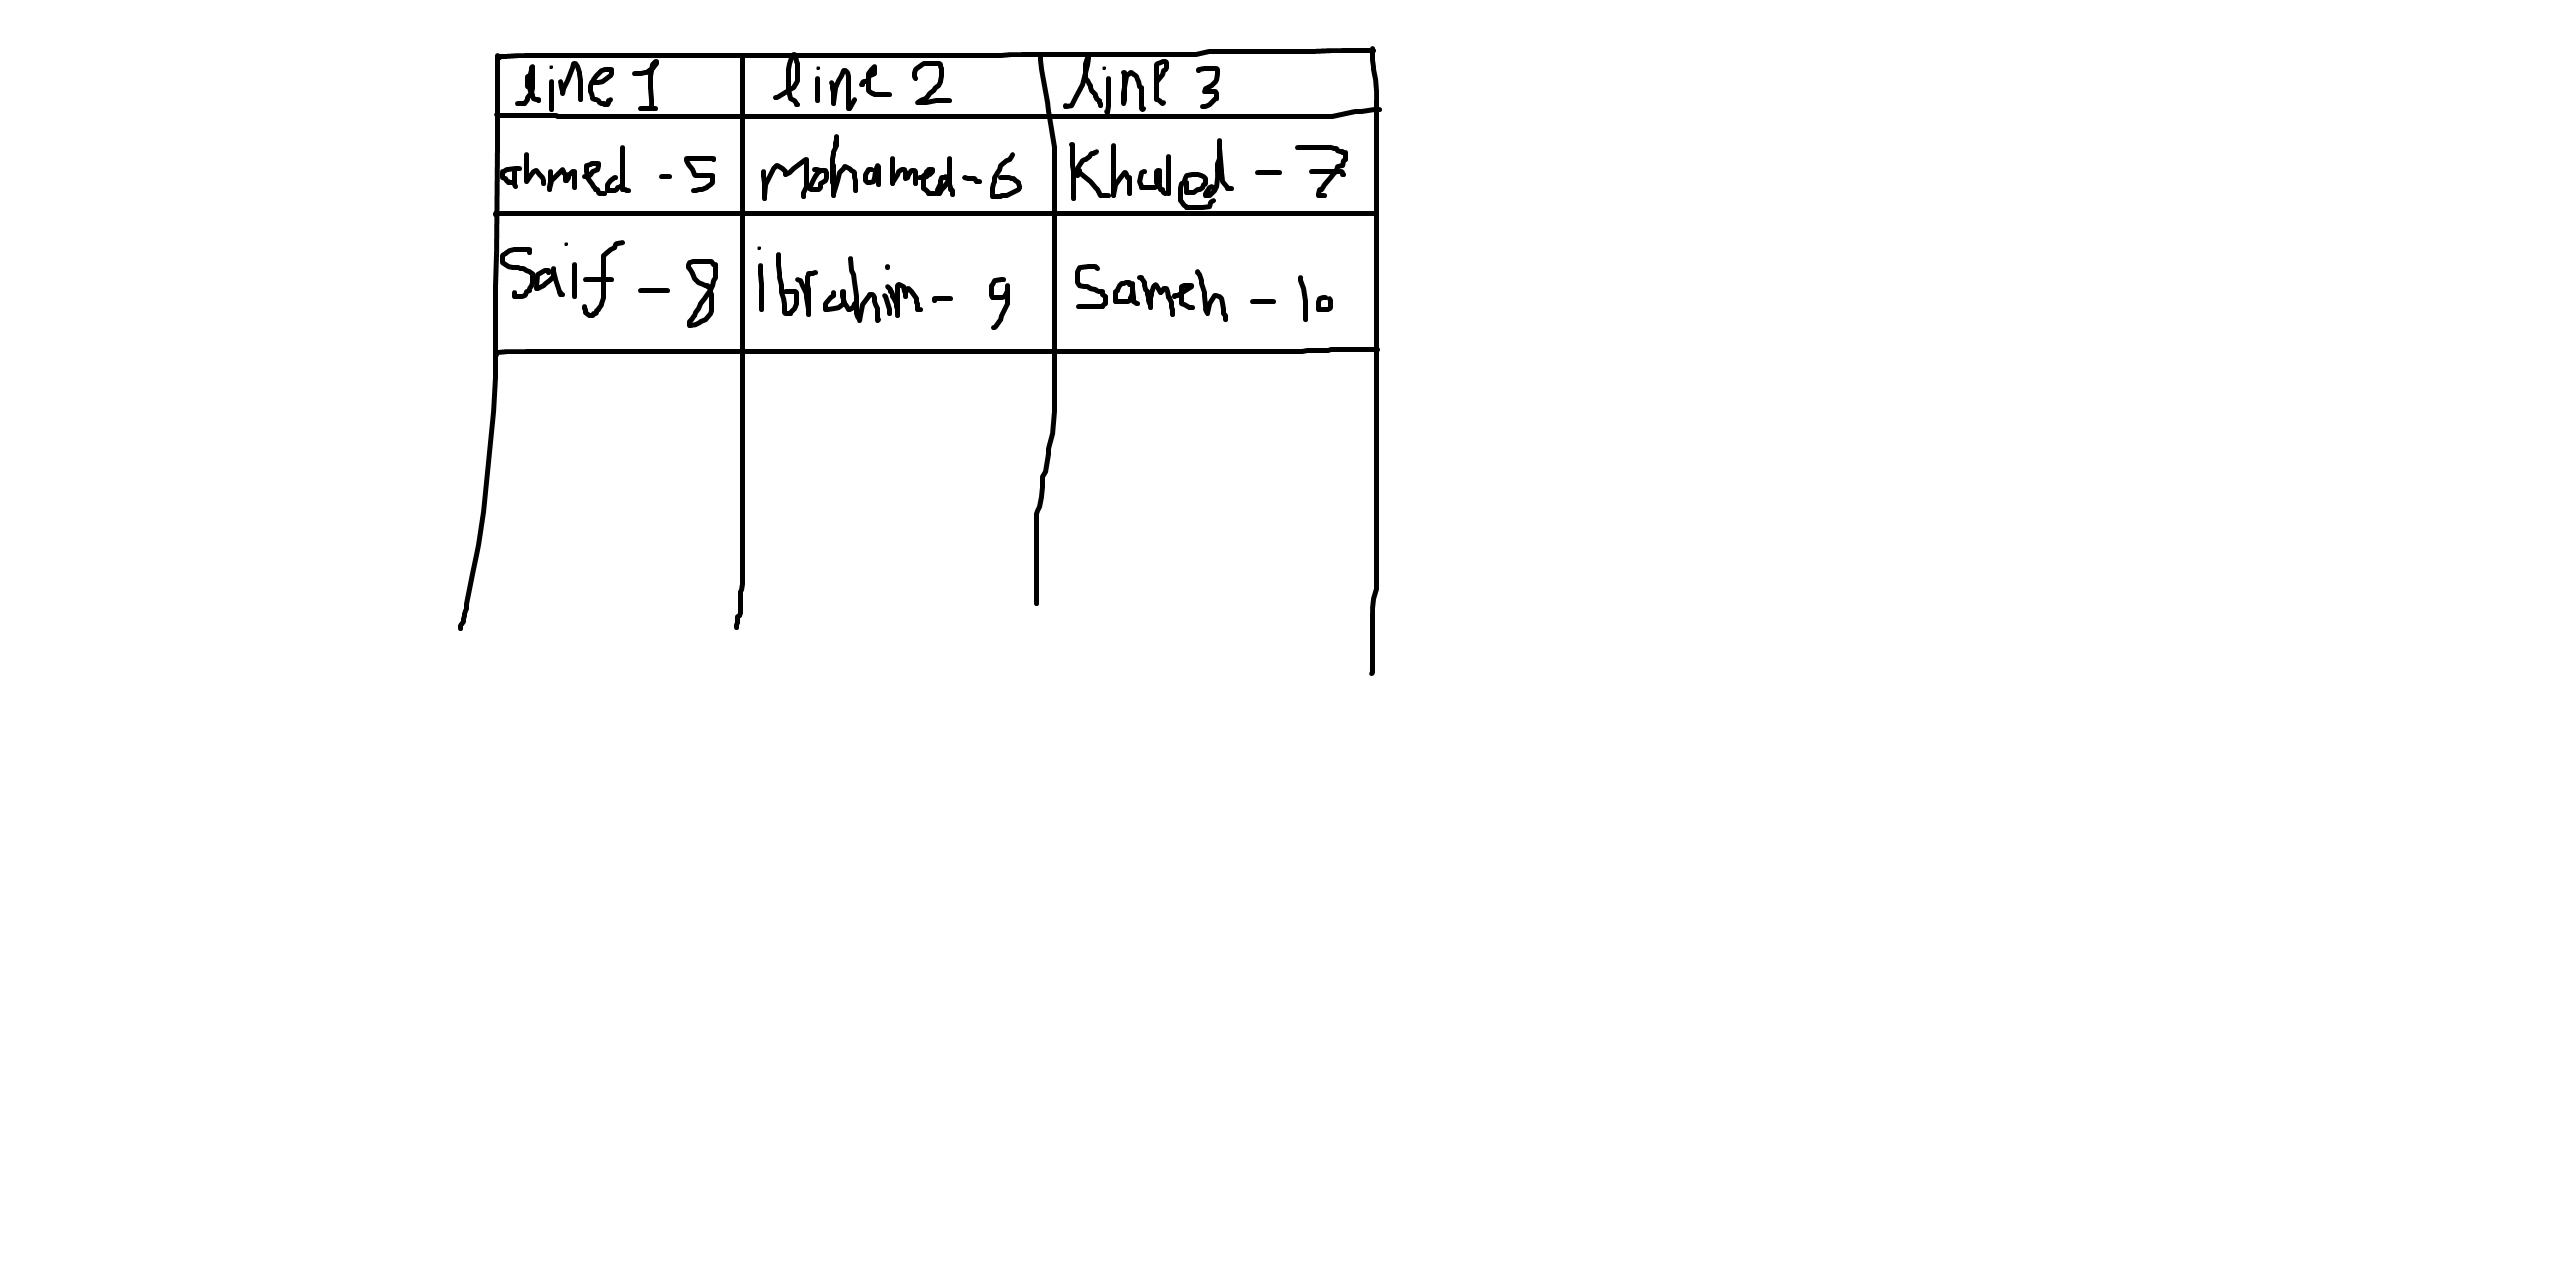 line 1 line 2 line 3
ahmed - 5 mohamed - 6 Khaled - 7
Saif - 8 ibrahim - 9 Sameh - 10